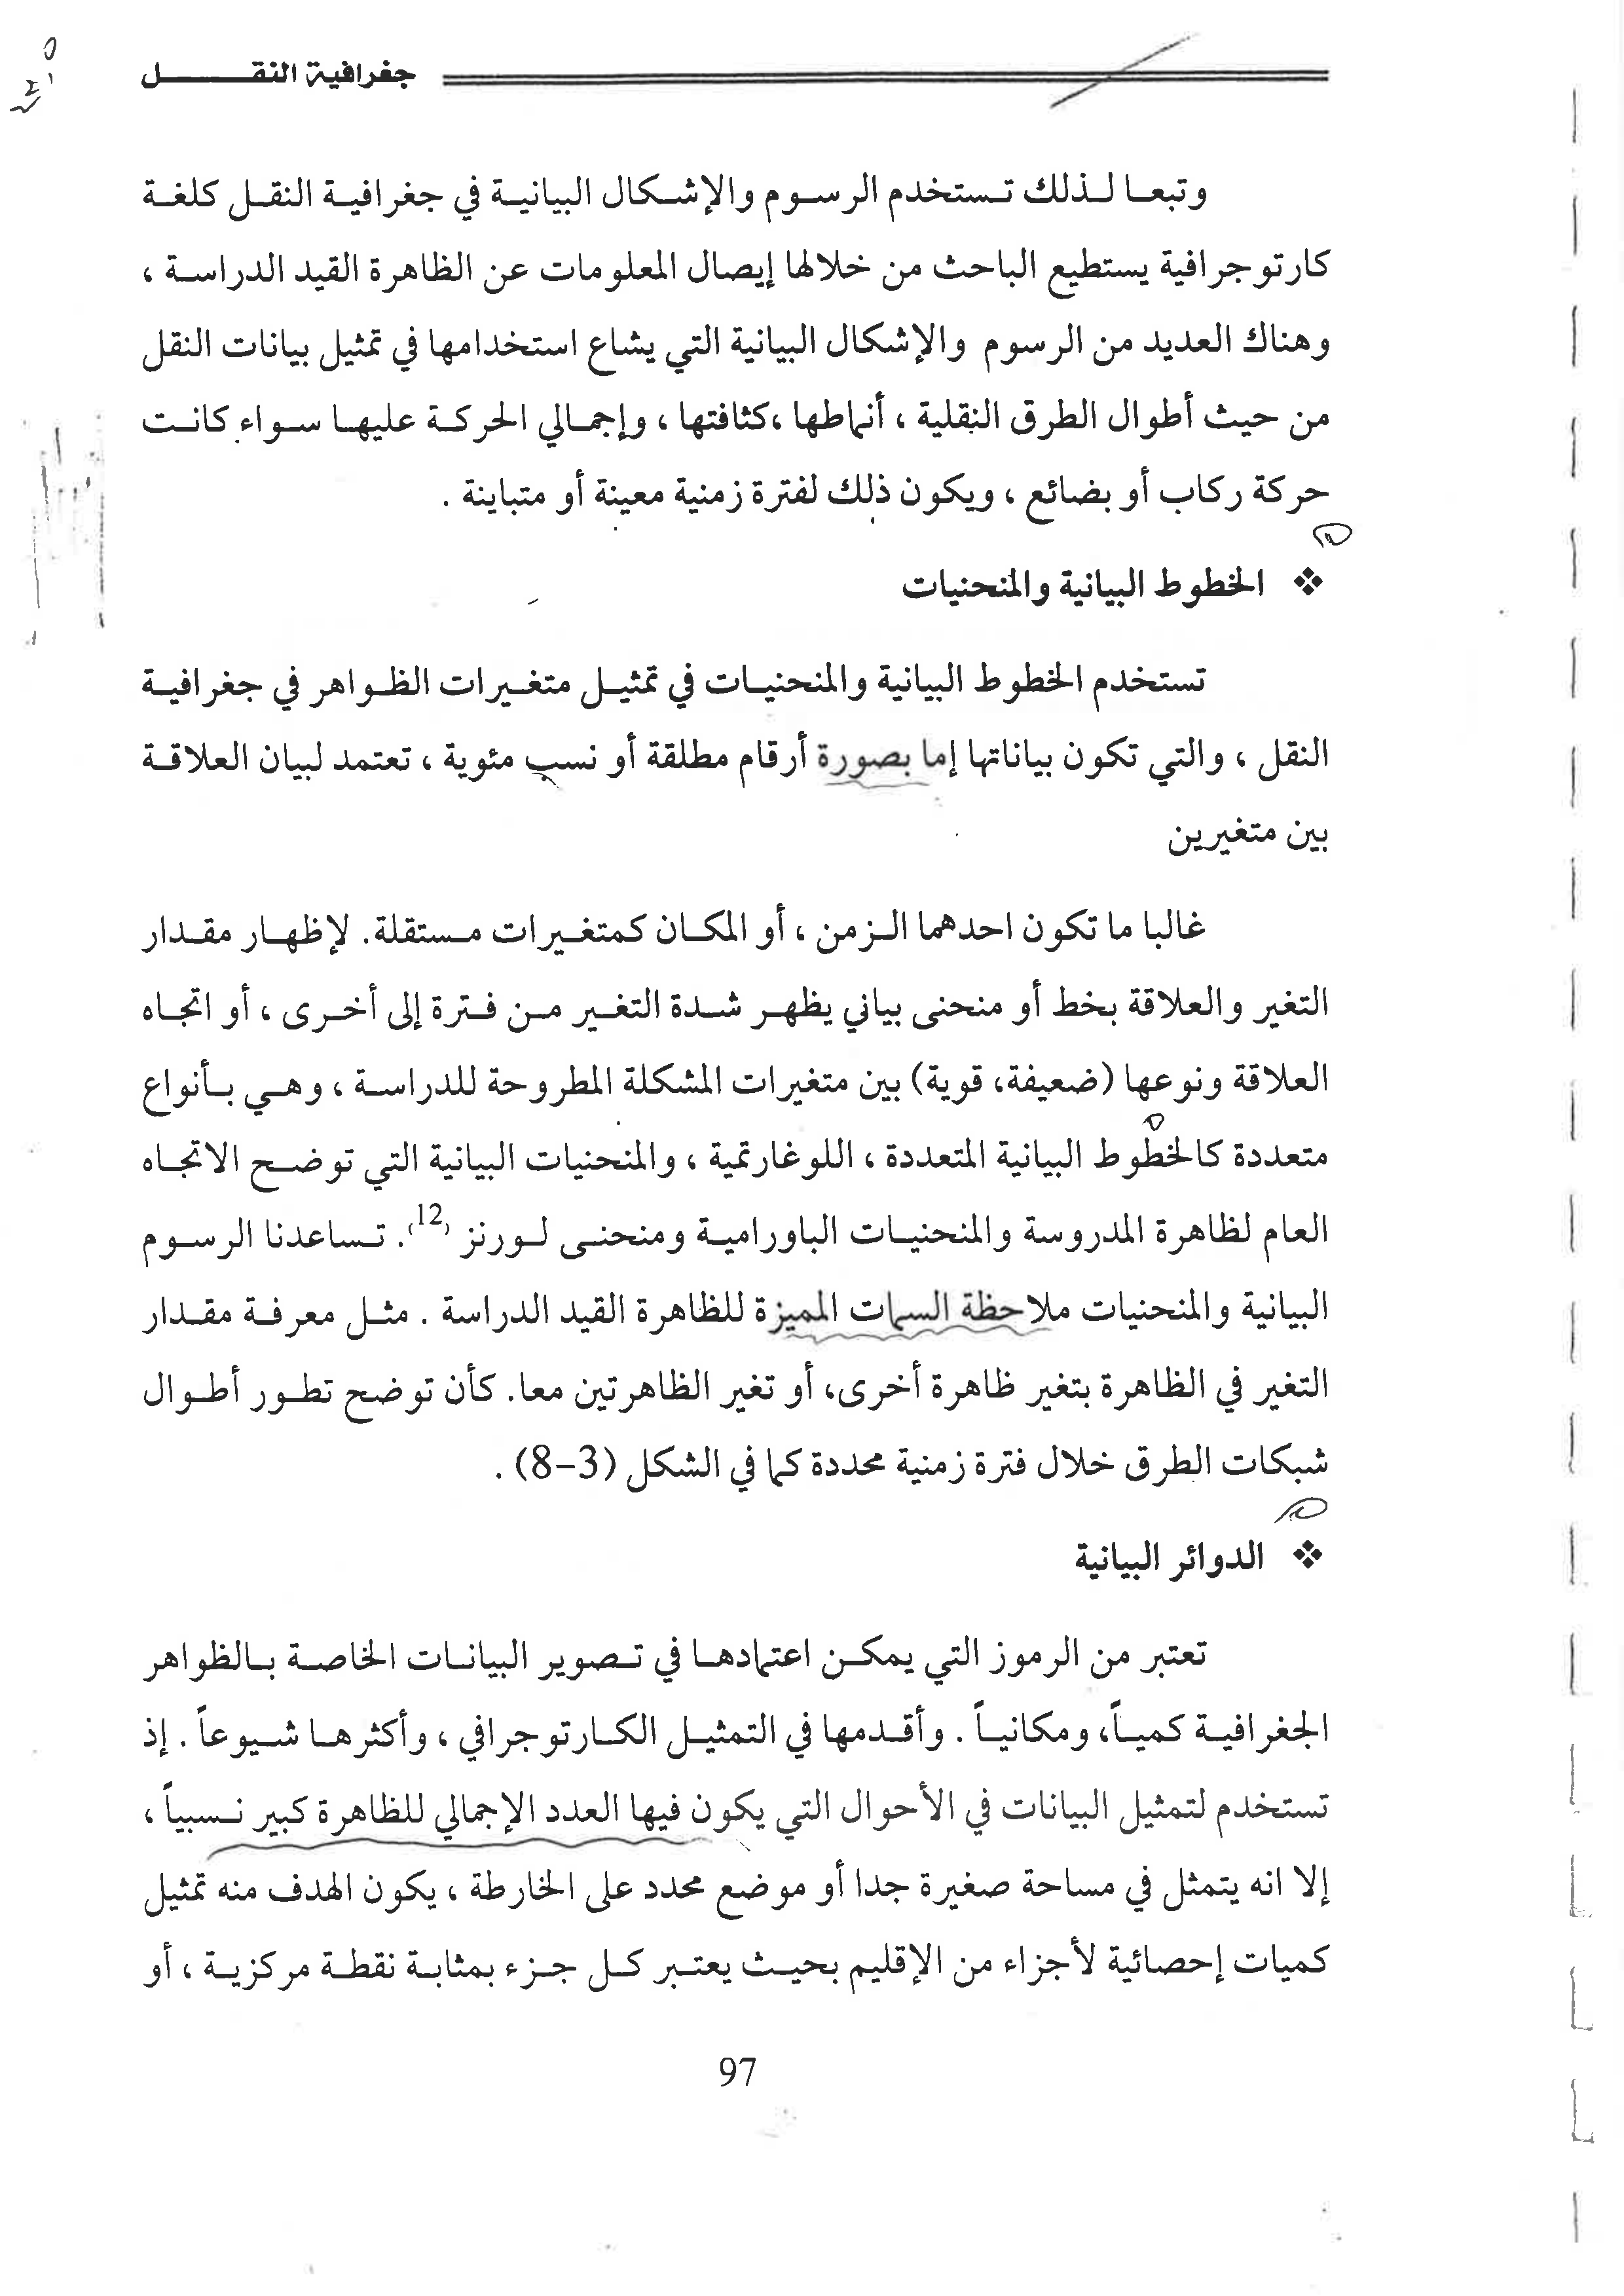 جغرافية النقل
وتبعا لذلك تستخدم الرسوم والإشكال البيانية في جغرافية النقل كلغة
كارتوجرافية يستطيع الباحث من خلالها إيصال المعلومات عن الظاهرة القيد الدراسة ،
وهناك العديد من الرسوم والإشكال البيانية التي يشاع استخدامها في تمثيل بيانات النقل
من حيث أطوال الطرق النقلية ، أنماطها ،كثافتها ، وإجمالي الحركة عليها سواء كانت
حركة ركاب أو بضائع ، ويكون ذلك لفترة زمنية معينة أو متباينة .
❖ الخطوط البيانية والمنحنيات
تستخدم الخطوط البيانية والمنحنيات في تمثيل متغيرات الظواهر في جغرافية
النقل ، والتي تكون بياناتها إما بصورة أرقام مطلقة أو نسب مئوية ، تعتمد لبيان العلاقة
بين متغيرين
غالبا ما تكون احدهما الزمن ، أو المكان كمتغيرات مستقلة. لإظهار مقدار
التغير والعلاقة بخط أو منحنى بياني يظهر شدة التغير من فترة إلى أخرى ، أو اتجاه
العلاقة ونوعها (ضعيفة، قوية) بين متغيرات المشكلة المطروحة للدراسة ، وهي بأنواع
متعددة كالخطوط البيانية المتعددة ، اللوغارتمية ، والمنحنيات البيانية التي توضح الاتجاه
العام لظاهرة المدروسة والمنحنيات الباورامية ومنحنى لورنز (12). تساعدنا الرسوم
البيانية والمنحنيات ملاحظة السمات المميزة للظاهرة القيد الدراسة . مثل معرفة مقدار
التغير في الظاهرة بتغير ظاهرة أخرى، أو تغير الظاهرتين معا. كأن توضح تطور أطوال
شبكات الطرق خلال فترة زمنية محددة كما في الشكل (3-8) .
❖ الدوائر البيانية
تعتبر من الرموز التي يمكن اعتمادها في تصوير البيانات الخاصة بالظواهر
الجغرافية كمياً، ومكانياً . وأقدمها في التمثيل الكارتوجرافي ، وأكثرها شيوعاً . إذ
تستخدم لتمثيل البيانات في الأحوال التي يكون فيها العدد الإجمالي للظاهرة كبير نسبياً ،
إلا انه يتمثل في مساحة صغيرة جدا أو موضع محدد على الخارطة ، يكون الهدف منه تمثيل
كميات إحصائية لأجزاء من الإقليم بحيث يعتبر كل جزء بمثابة نقطة مركزية ، أو
97